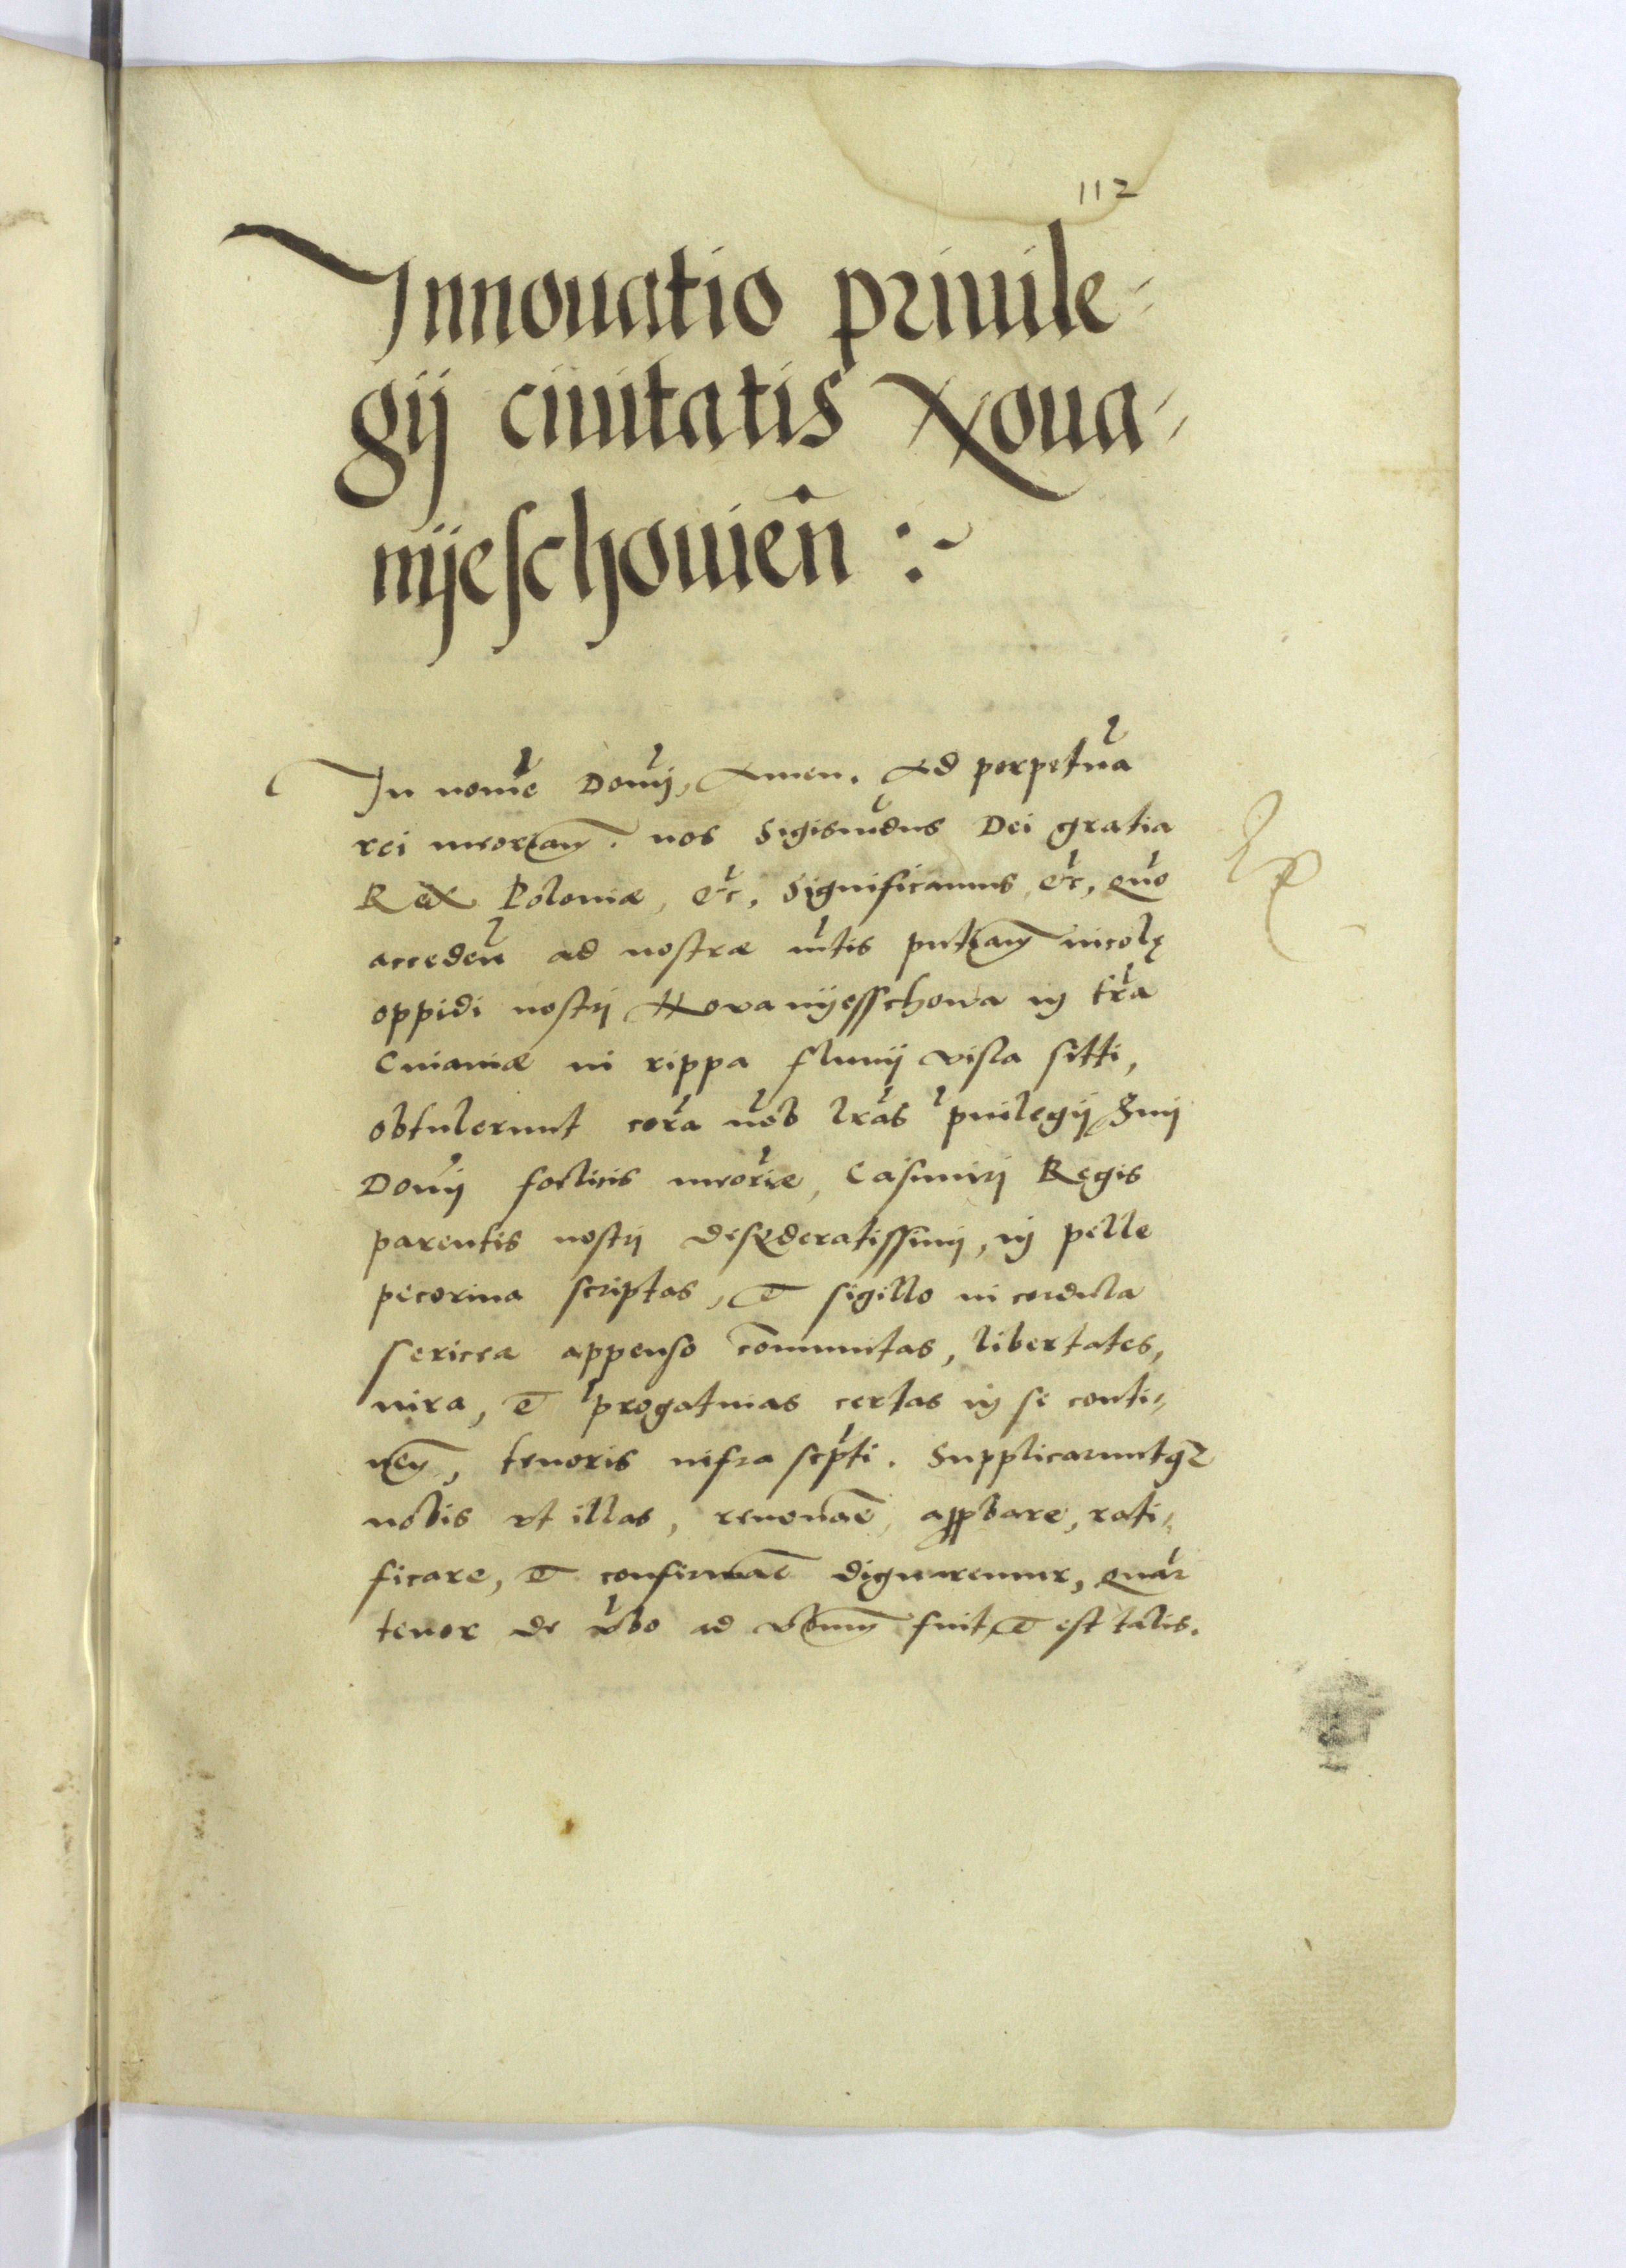 112
Innouatio priuile-
gij ciuitatis Noua-
nijeschouień :~
In noīe Domīj, Amen. Ad perpetuā
rei meoriam. nos Sigismūdus Dei gratia
Rex Poloniæ, etc, Significamus etc, quō
acceden̄ ad nostræ m̄tis pntiam incolę
oppidi nostrj Nova nijesschowa in t̄ra
Cuianiæ in rippa fluuij visla sitti,
obtulerunt corā nob l̄ras p̄uilegij S̄mj
Domīj fœlicis meoriæ, Casimirj Regis
parentis nostrj desyderatissimj, in pelle
pecorina scriptas, et sigillo in cordula
sericea appenso com̄unitas, libertates,
iura, et p̄rogatiuas certas in se conti-
nen, tenoris infra scp̄ti. Supplicaruntq3
nobis vt illas, renouāe, approbare, rati-
ficare, et confirmāe dignaremur, quār
tenor de v̄bo ad v̄bum fuit et est talis.